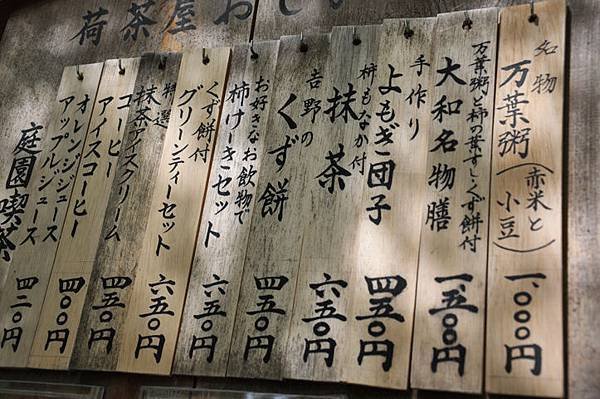 荷茶屋おし
名物
万葉粥(赤米と小豆)
一、〇〇〇円
万葉粥と柿の葉すし・くず餅付
大和名物膳
一、五〇〇円
手作り
よもぎ団子
四五〇円
柿もなか付
抹茶
六五〇円
吉野の
くず餅
四五〇円
お好きなお飲物で
柿けーきセット
六五〇円
くず餅付
グリーンティーセット
六五〇円
特選
抹茶アイスクリーム
四五〇円
コーヒー
アイスコーヒー
四〇〇円
オレンジジュース
アップルジュース
四二〇円
庭園喫茶